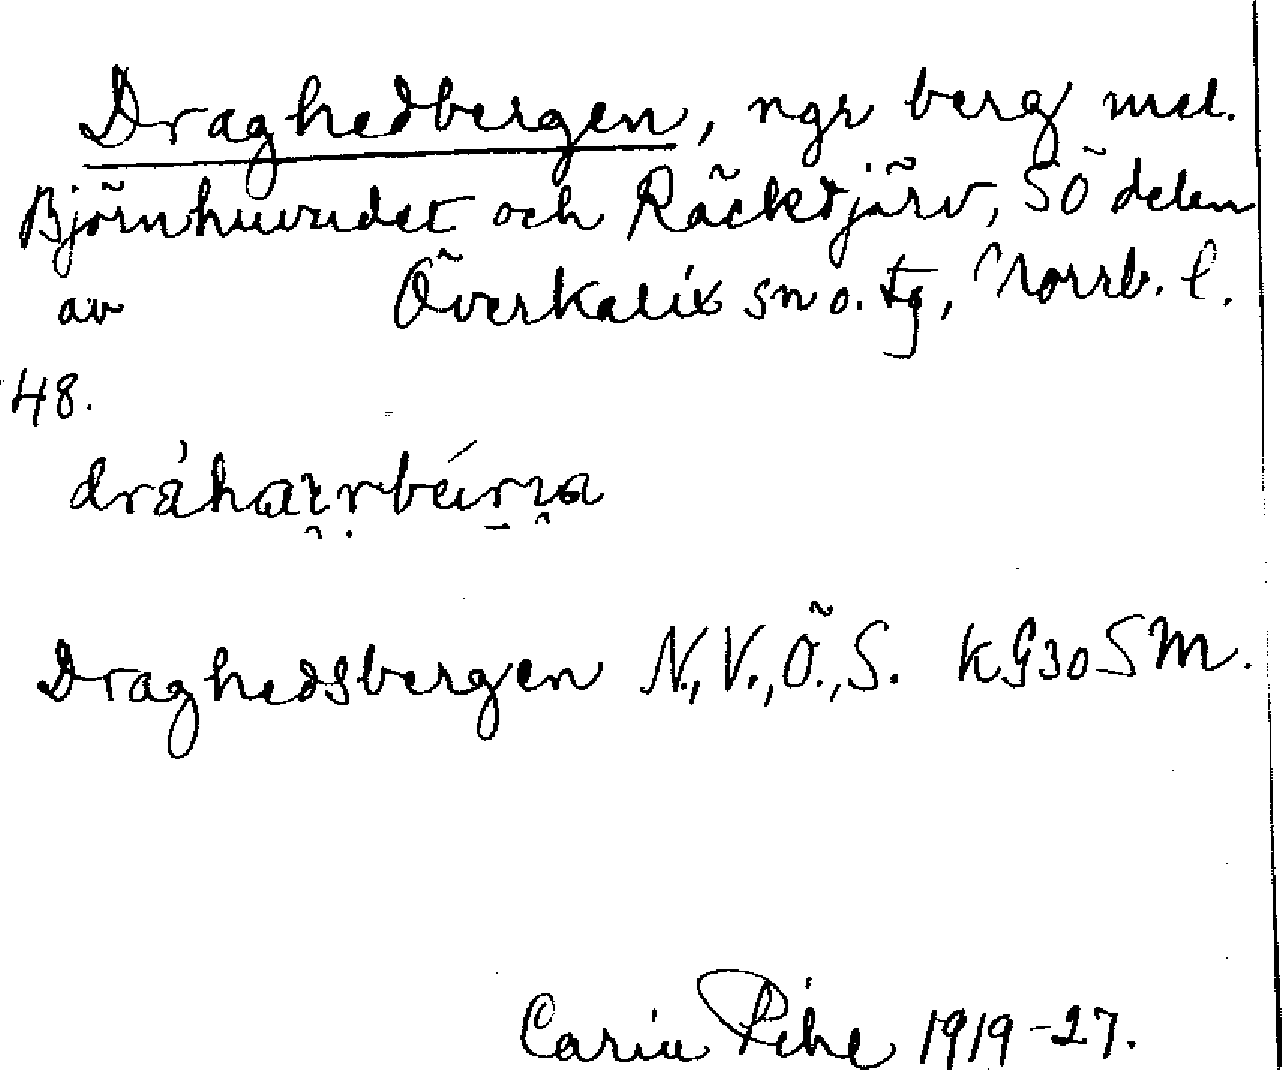 Draghedbergen, ngr berg mel.
Björnhuvudet och Räcktjärv, SÖ delen
av Överkalix sn o. tg, Norrb. l.
48.
Draghedsbergen N., V., Ö., S. KG30SM.
Carin Pihl 1919-27.